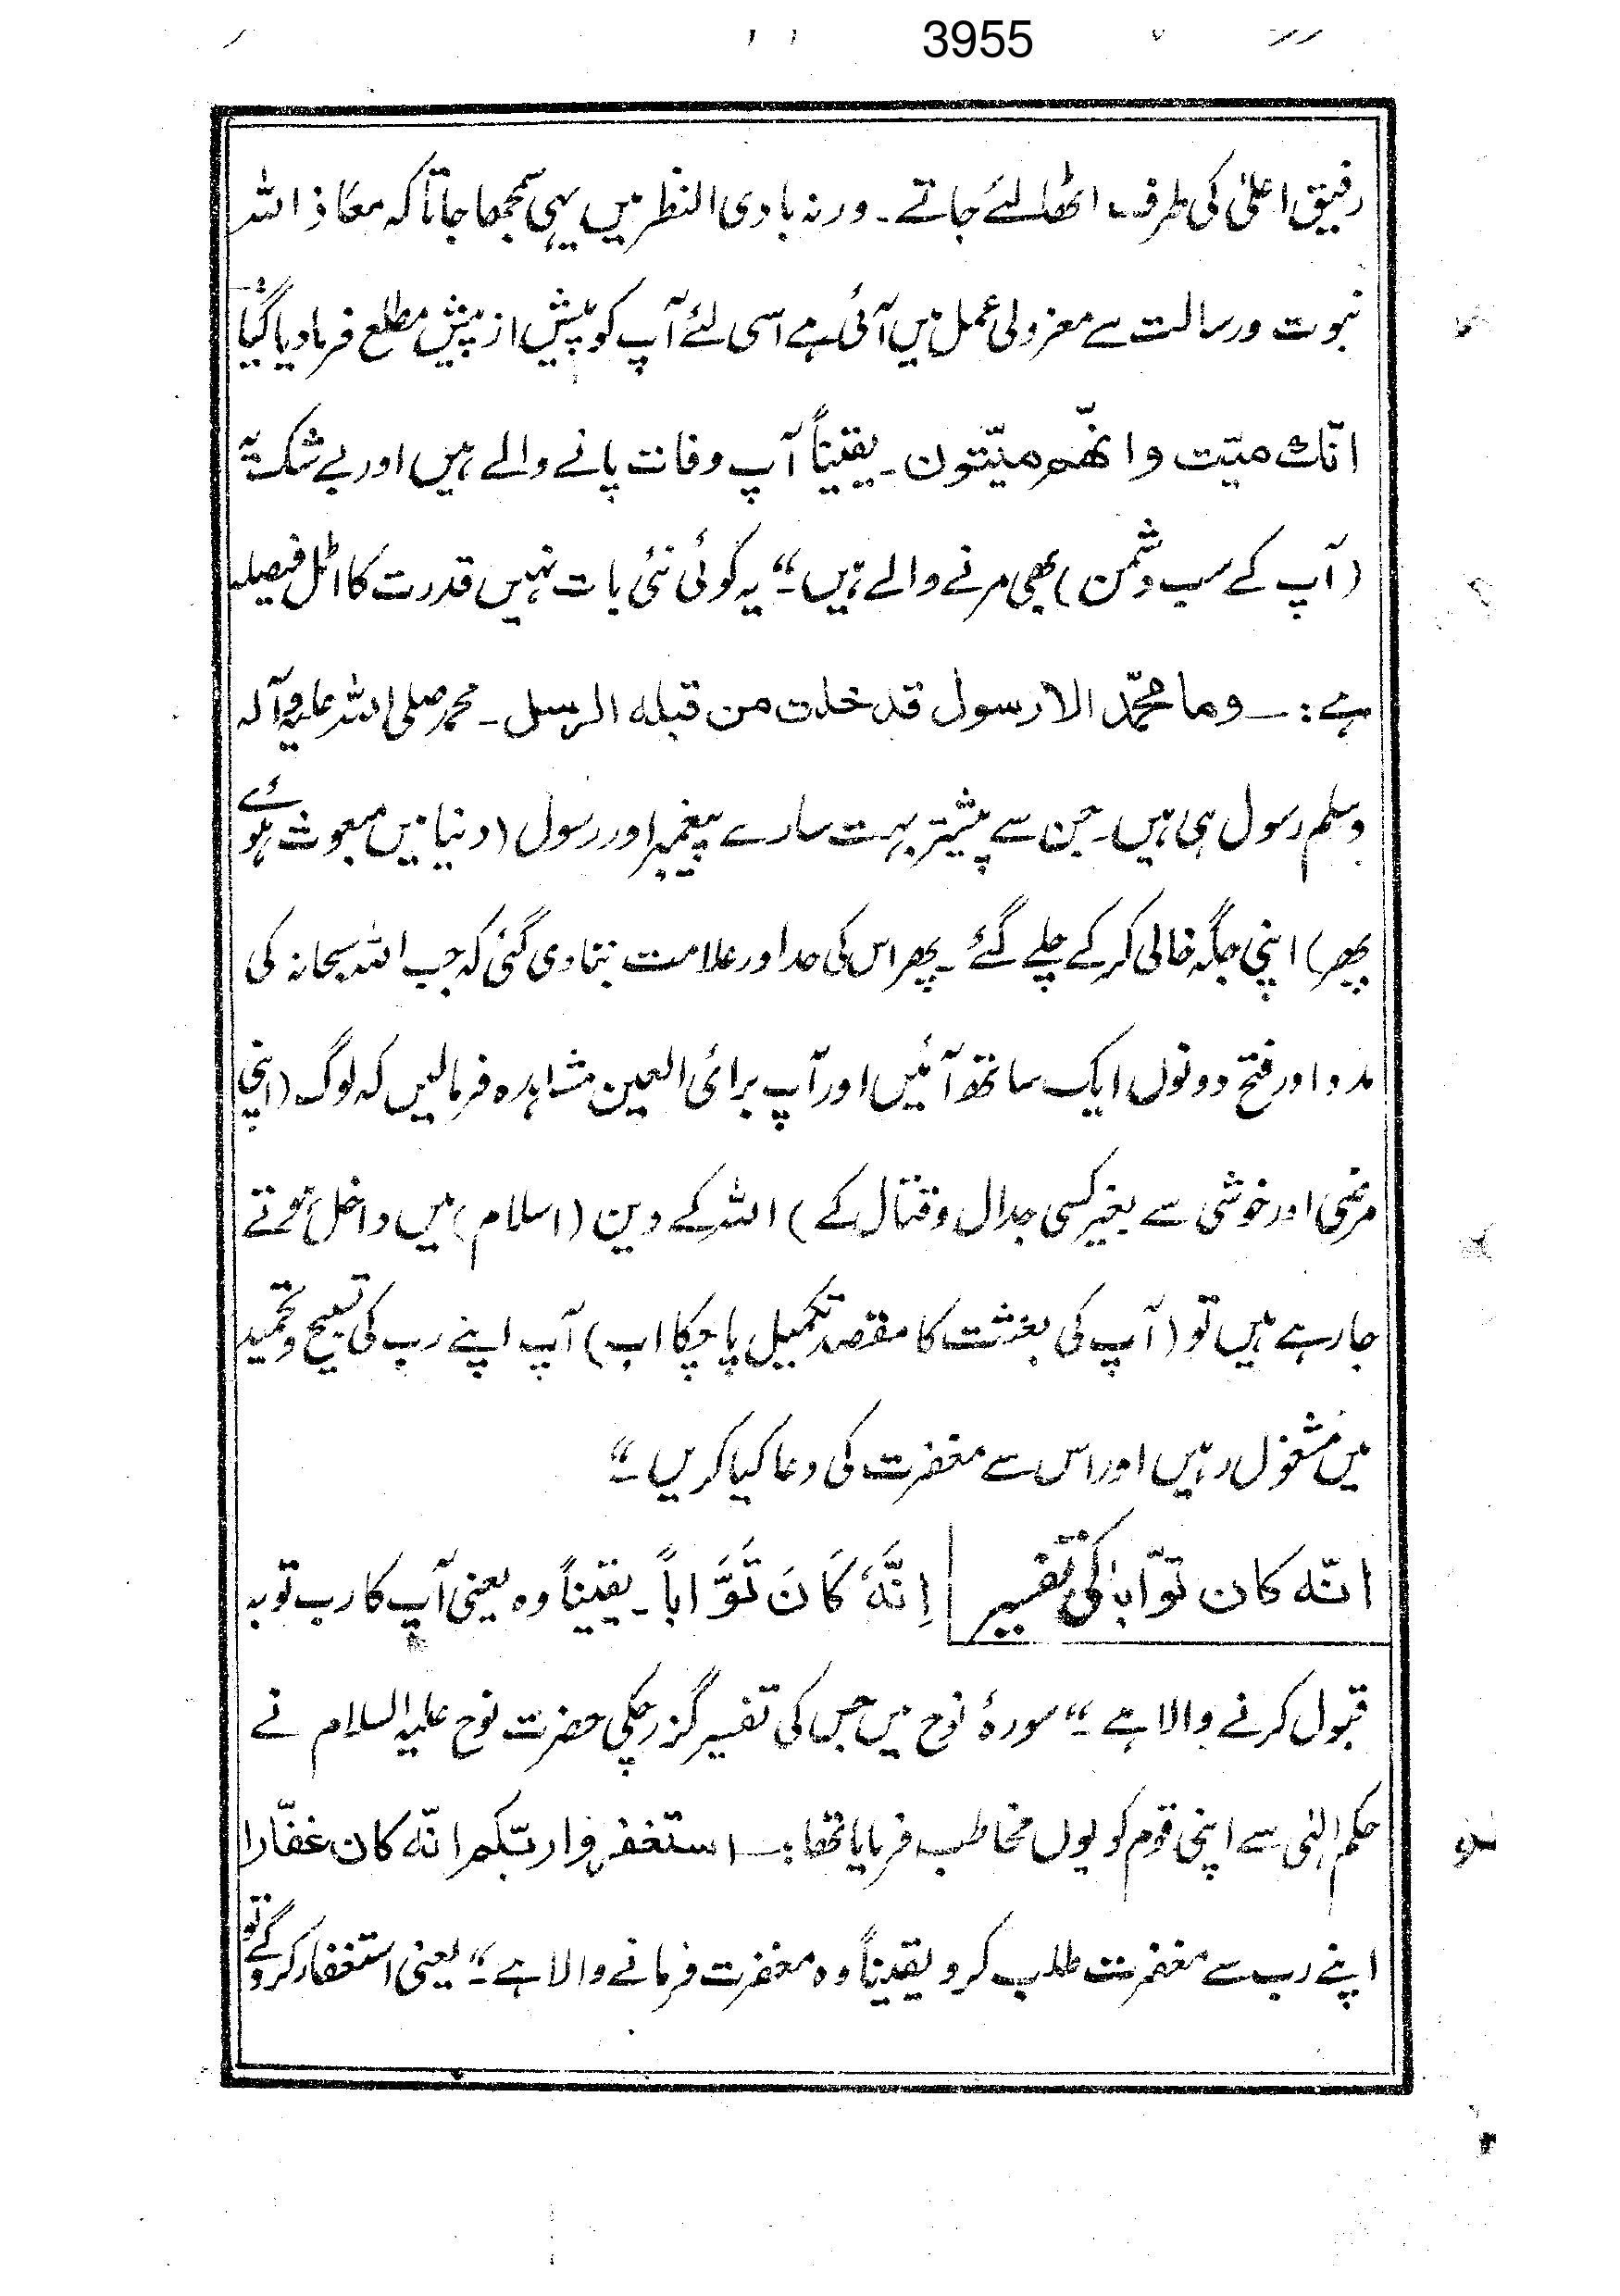 3955
رفیق اعلیٰ کی طرف اٹھا لئے جاتے۔ ورنہ بادی النظر میں یہی سمجھا جاتا کہ معاذ اللہ
نبوت ورسالت سے معزولی عمل میں آئی ہے اسی لئے آپ کو پیش از پیش مطلع فرما دیا گیا
انّک میّت وانّھم میّتون۔ یقیناً آپ وفات پانے والے ہیں اور بے شک یہ
(آپ کے سب دشمن) بھی مرنے والے ہیں۔“ یہ کوئی نئی بات نہیں قدرت کا اٹل فیصلہ
ہے:۔ وما محمّد الا رسول قد خلت من قبلہ الرسل۔ محمد صلی اللہ علیہ وآلہ
وسلم رسول ہی ہیں۔ جن سے پیشتر بہت سارے پیغمبر اور رسول (دنیا میں مبعوث ہوئے
پھر) اپنی جگہ خالی کر کے چلے گئے۔ پھر اس کی حد اور علامت بتا دی گئی کہ جب اللہ سبحانہ کی
مدد اور فتح دونوں ایک ساتھ آئیں اور آپ برائی العین مشاہدہ فرمالیں کہ لوگ (اپنی
مرضی اور خوشی سے بغیر کسی جدال وقتال کے) اللہ کے دین (اسلام) میں داخل ہوتے
جارہے ہیں تو (آپ کی بعثت کا مقصد تکمیل پا چکا اب) آپ اپنے رب کی تسبیح وتحمید
میں مشغول رہیں اور اس سے مغفرت کی دعا کیا کریں۔“
انّہ کان توّاباً کی تفسیر اِنَّہٗ کَانَ تَوَّاباً۔ یقیناً وہ یعنی آپ کا رب توبہ
قبول کرنے والا ہے۔“ سورۂ نوح میں جس کی تفسیر گزر چکی حضرت نوح علیہ السلام نے
حکم الٰہی سے اپنی قوم کو یوں مخاطب فرمایا تھا:۔ استغفروا ربّکم انّہ کان غفّارا
اپنے رب سے مغفرت طلب کرو یقیناً وہ مغفرت فرمانے والا ہے۔“ یعنی استغفار کروگے تو